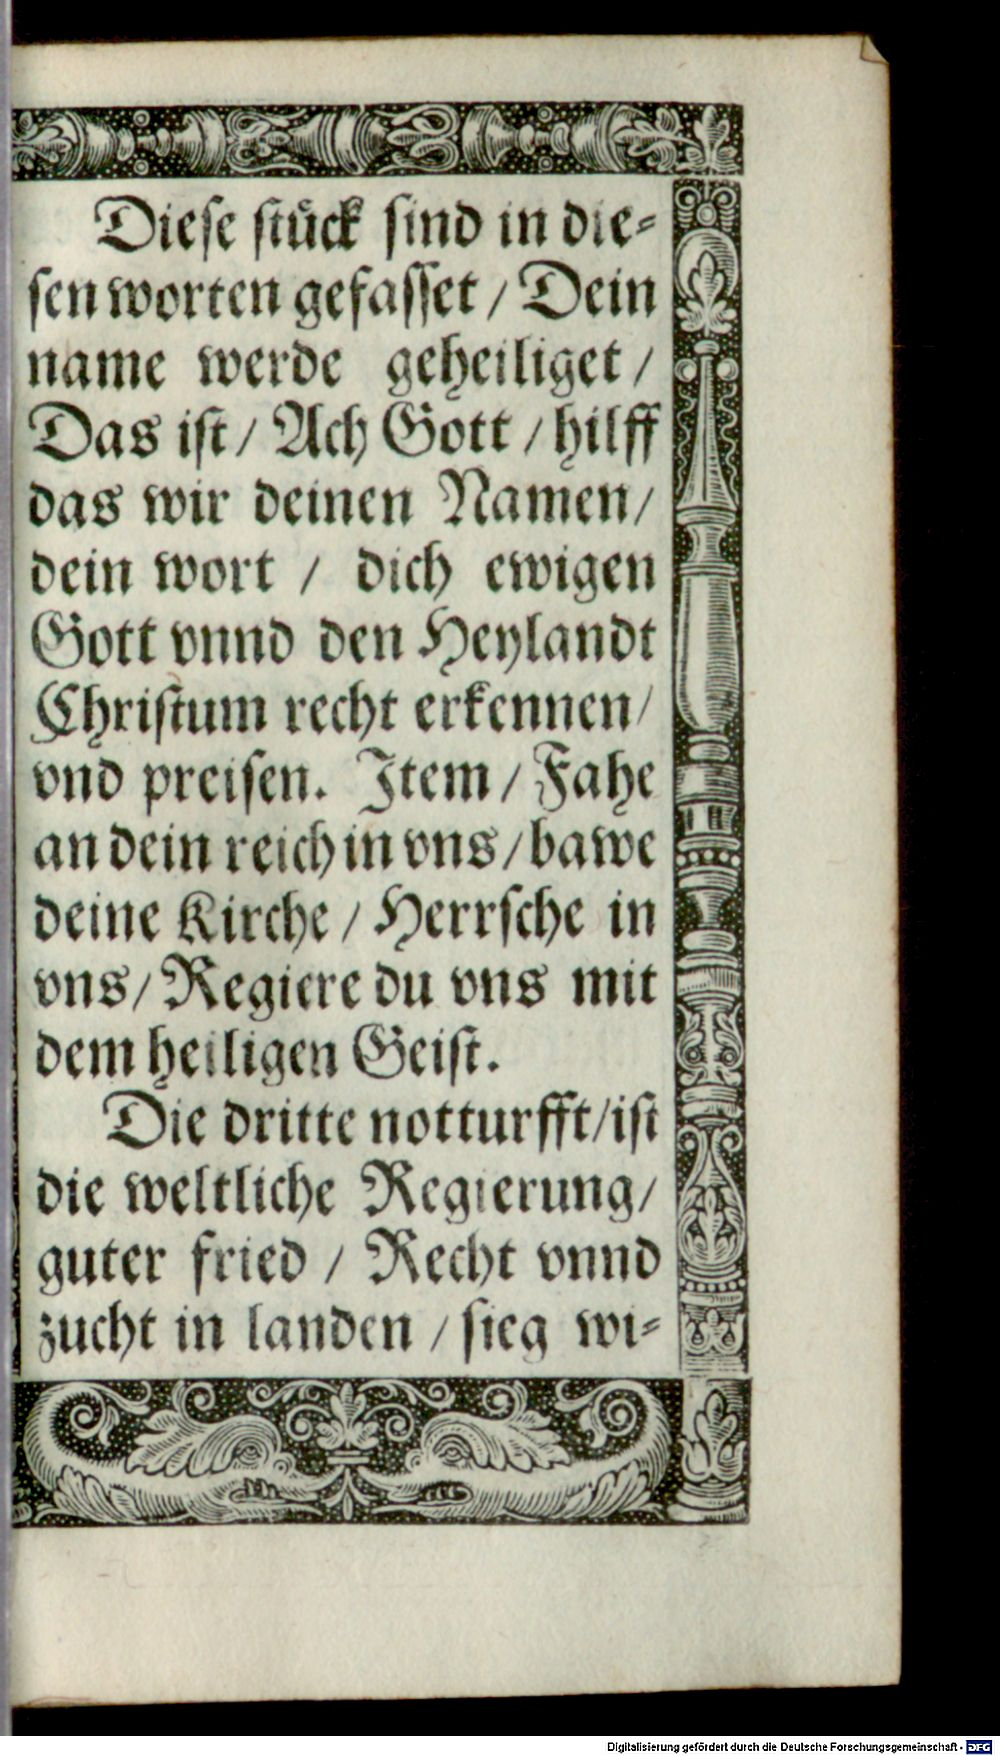 Dieſe ſtuͤck ſind in die⸗
ſen worten gefaſſet / Dein
name werde geheiliget /
Das iſt / Ach Gott / hilff
das wir deinen Namen /
dein wort / dich ewigen
Gott vnnd den Heylandt
Chriſtum recht erkennen /
vnd preiſen. Item / Fahe
an dein reich in vns / bawe
deine Kirche / Herrſche in
vns / Regiere du vns mit
dem heiligen Geiſt.
Die dritte notturfft / iſt
die weltliche Regierung /
guter fried / Recht vnnd
zucht in landen / ſieg wi⸗
Digitalisierung gefördert durch die Deutsche Forschungsgemeinschaft - DFG